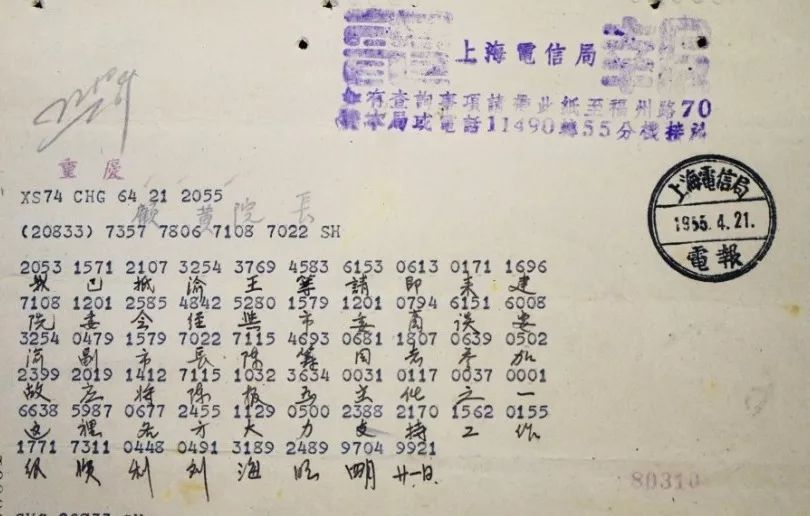 上海電信局
如有查詢事項請帶此紙至福州路70
號本局或電話11490轉55分機接洽
重慶
XS74 CHG 64 21 2055
顧黃院長
(20833) 7357 7806 7108 7022 SH
上海電信局
1955.4.21.
電報
2053 1571 2107 3254 3769 4583 6153 0613 0171 1696
我已抵渝王等請即來建
7108 1201 2585 4842 5280 1579 1201 0794 6151 6008
院委会經與市委商談要
3254 0479 1579 7022 7115 4693 0681 1807 0639 0502
渝副市長陳籌同志参加
2399 2019 1412 7115 1032 3634 0031 0117 0037 0001
故应將陳报為主任之一
6638 5987 0677 2455 1129 0500 2388 2170 1562 0155
这裡各方大力支持工作
1771 7311 0448 0491 3189 2489 9704 9921
很順利刘海旺四月廿一日
80310